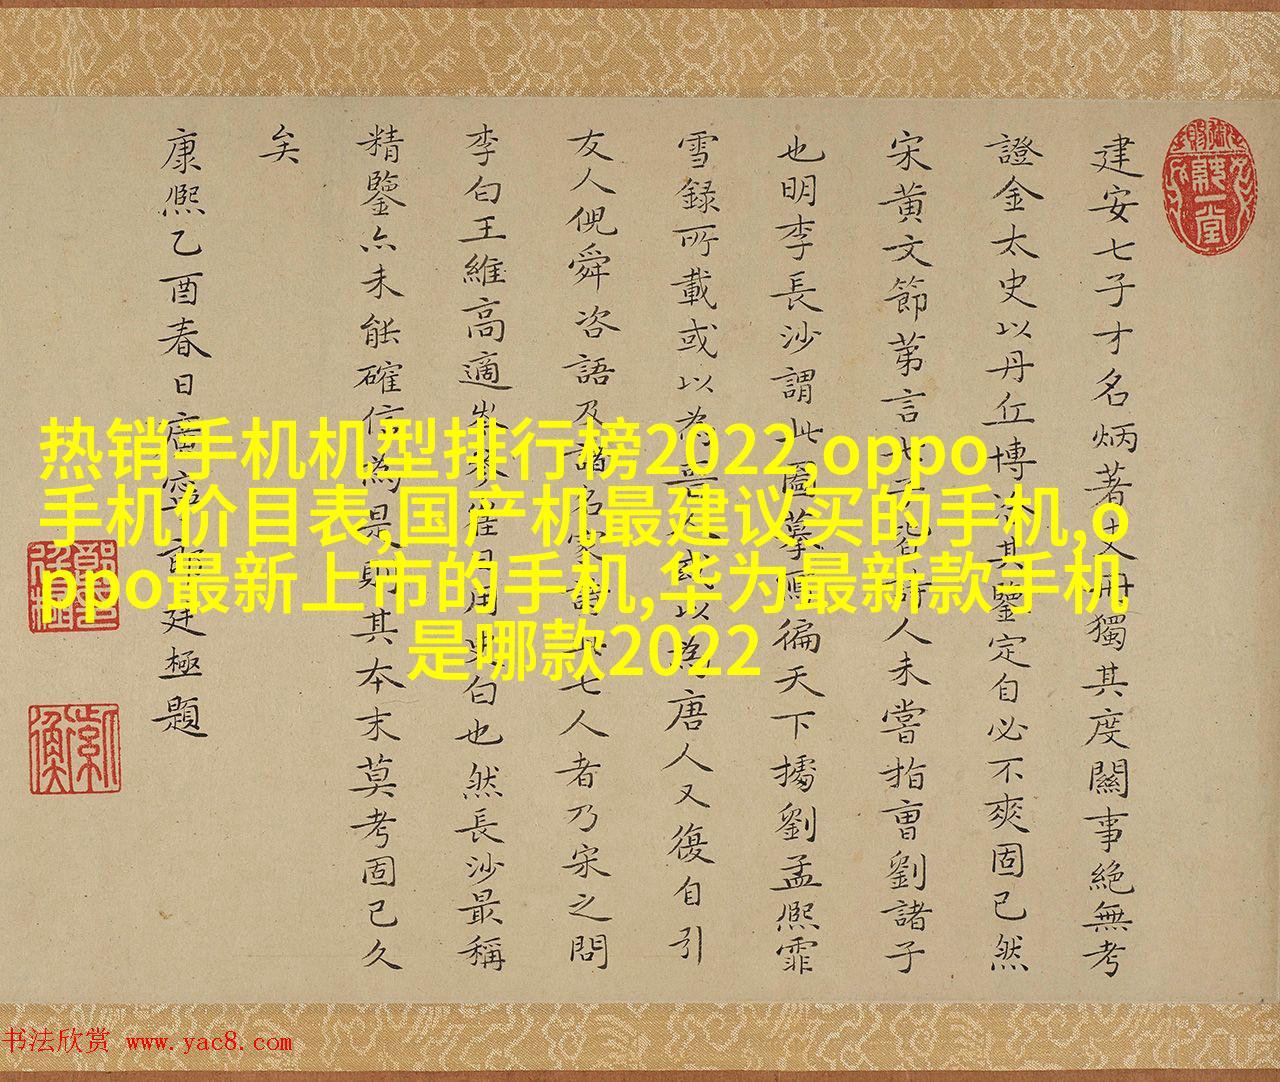 建安七子才名炳著獨其度關事絕無考
證金太史以丹丘博洽其鑒定自必不爽固已然
宋黃文節苐言人未嘗指曹劉諸子
也明李長沙謂此圖摹徧天下據劉孟熙霏
雪録所載或以為晉或以為唐人又復自引
友人倪舜咨語及諸名家詩七人者乃宋之問
李白王維高適岑參崔白也然長沙最稱
精鑒亦未能確信為是則其本末莫考固已久
矣
康熙乙酉春日廷極題
热销手机机型排行榜2022,oppo
手机价目表,国产机最建议买的手机,o
ppo最新上市的手机,华为最新款手机
是哪款2022
书法欣赏 www.yac8.com